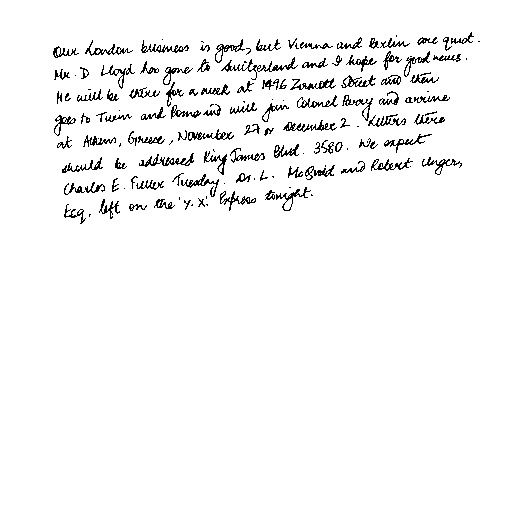 Our London business is good, but Vienna and Berlin are quiet.
Mr. D Lloyd has gone to Switzerland and I hope for good news.
He will be there for a week at 1496 Zermott Street and then
goes to Turin and Rome and will join Colonel Parry and arrive
at Athens, Greece, November 27 or December 2. Letters there
should be addressed King James Blvd. 3580. We expect
Charles E. Fuller Tuesday. Dr. L. McQuaid and Robert Unger,
Esq. left on the 'Y.X.' Express tonight.